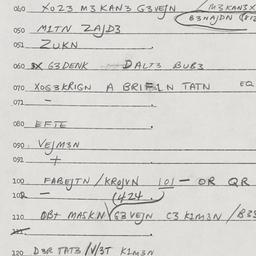 040 X023 M3KAN3 G3VEJN / M3KAN3X
B3HAJDN (812
050 M1TN ZAJD3
051 ZUKN
060 G3DENK DALT3 BUB3
070 XOG3KRIGN A BRIF1N TATN EQ
071 —
080 EFTE
090 VEJM3N
091 +
100 FABEJTN / KROJVN 101 — OR QR
102 — (424.
110 OB+ MASKN G3VEJN C3 K1M3N / 833
111
120 D3R TAT3 /V/3T K1M3N